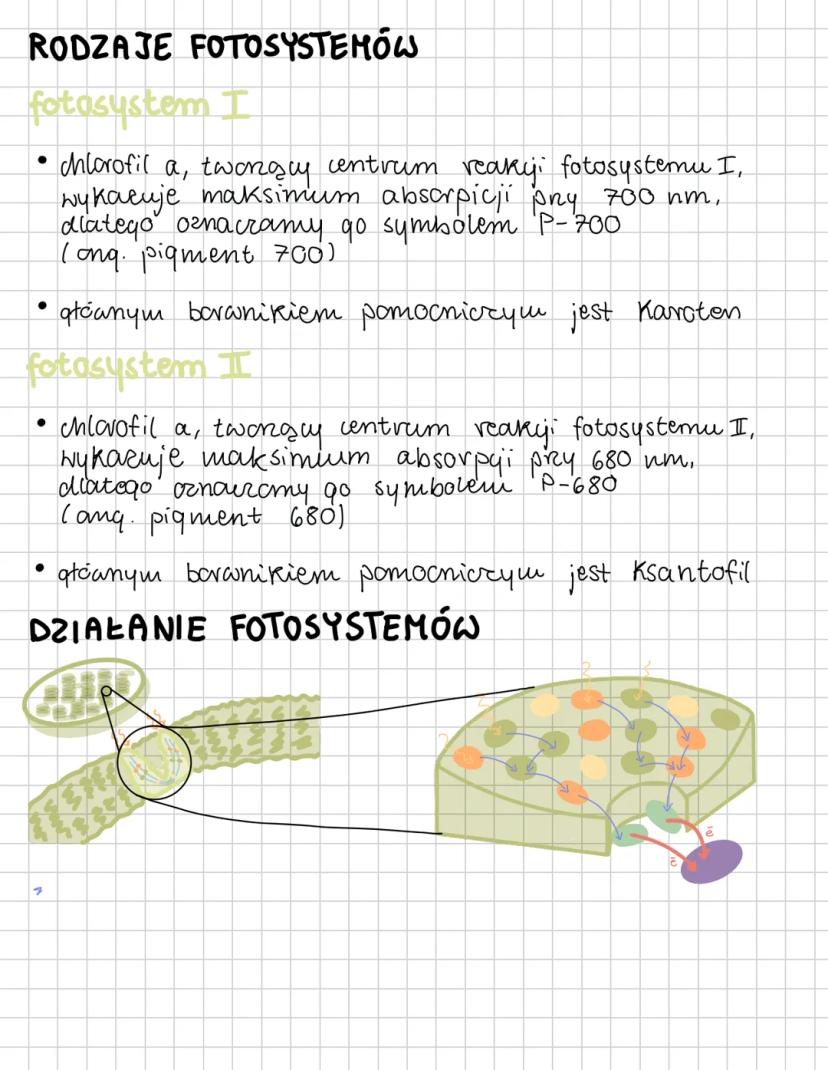 RODZAJE FOTOSYSTEMÓW
fotosystem I
• chlorofil a, tworzący centrum reakcji fotosystemu I,
wykazuje maksimum absorpicji przy 700 nm,
dlatego oznaczamy go symbolem P-700
(ang. pigment 700)
• głównym barwnikiem pomocniczym jest karoten
fotosystem II
• chlorofil a, tworzący centrum reakcji fotosystemu II,
wykazuje maksimum absorpcji przy 680 nm,
dlatego oznaczamy go symbolem P-680
(ang. pigment 680)
• głównym barwnikiem pomocniczym jest ksantofil
DZIAŁANIE FOTOSYSTEMÓW
ē
ē